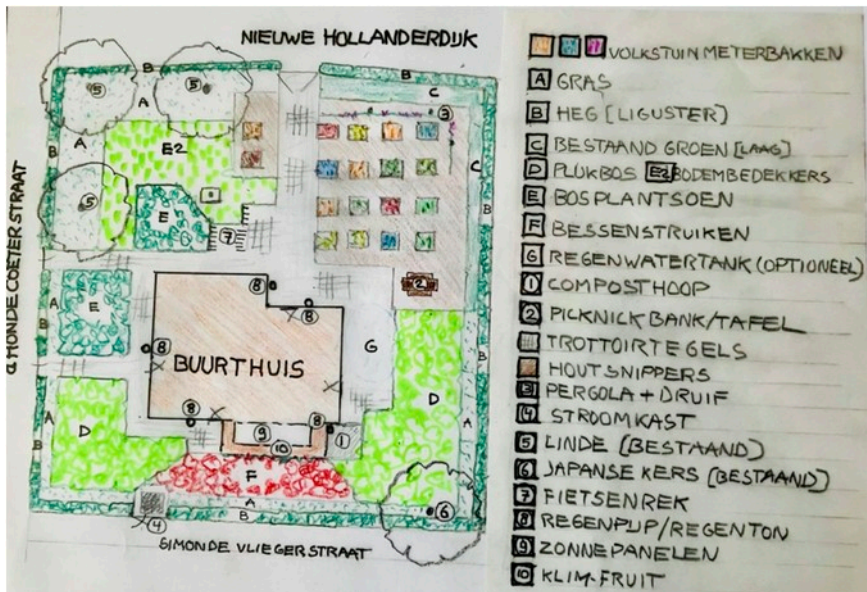 NIEUWE HOLLANDERDIJK
B
B
5
5
A
C
3
A
E2
B
B
C
5
E
6
7
B
2
8
8
A
E
G
8
BUURTHUIS
B
d HONDECOETERSTRAAT
D
A
D
A
8
8
9
1
10
B
F
A
B
6
4
SIMONDE VLIEGERSTRAAT
VOLKSTUIN METERBAKKEN
A GRAS
B HEG [LIGUSTER]
C BESTAAND GROEN [LAAG]
D PLUKBOS E2 BODEMBEDEKKERS
E BOSPLANTSOEN
F BESSENSTRUIKEN
G REGENWATERTANK (OPTIONEEL)
1 COMPOSTHOOP
2 PICKNICK BANK/TAFEL
TROTTOIRTEGELS
HOUTSNIPPERS
3 PERGOLA + DRUIF
4 STROOMKAST
5 LINDE [BESTAAND)
6 JAPANSE KERS [BESTAAND)
7 FIETSENREK
8 REGENPIJP/REGENTON
9 ZONNEPANELEN
10 KLIM-FRUIT